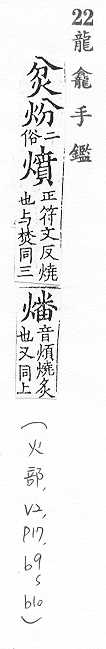 22 龍龕手鑑
炃炌二俗燌正符文反燒也与焚同三
燔音煩燒炙也又同上
(火部, V2, P17, b9 s b10)